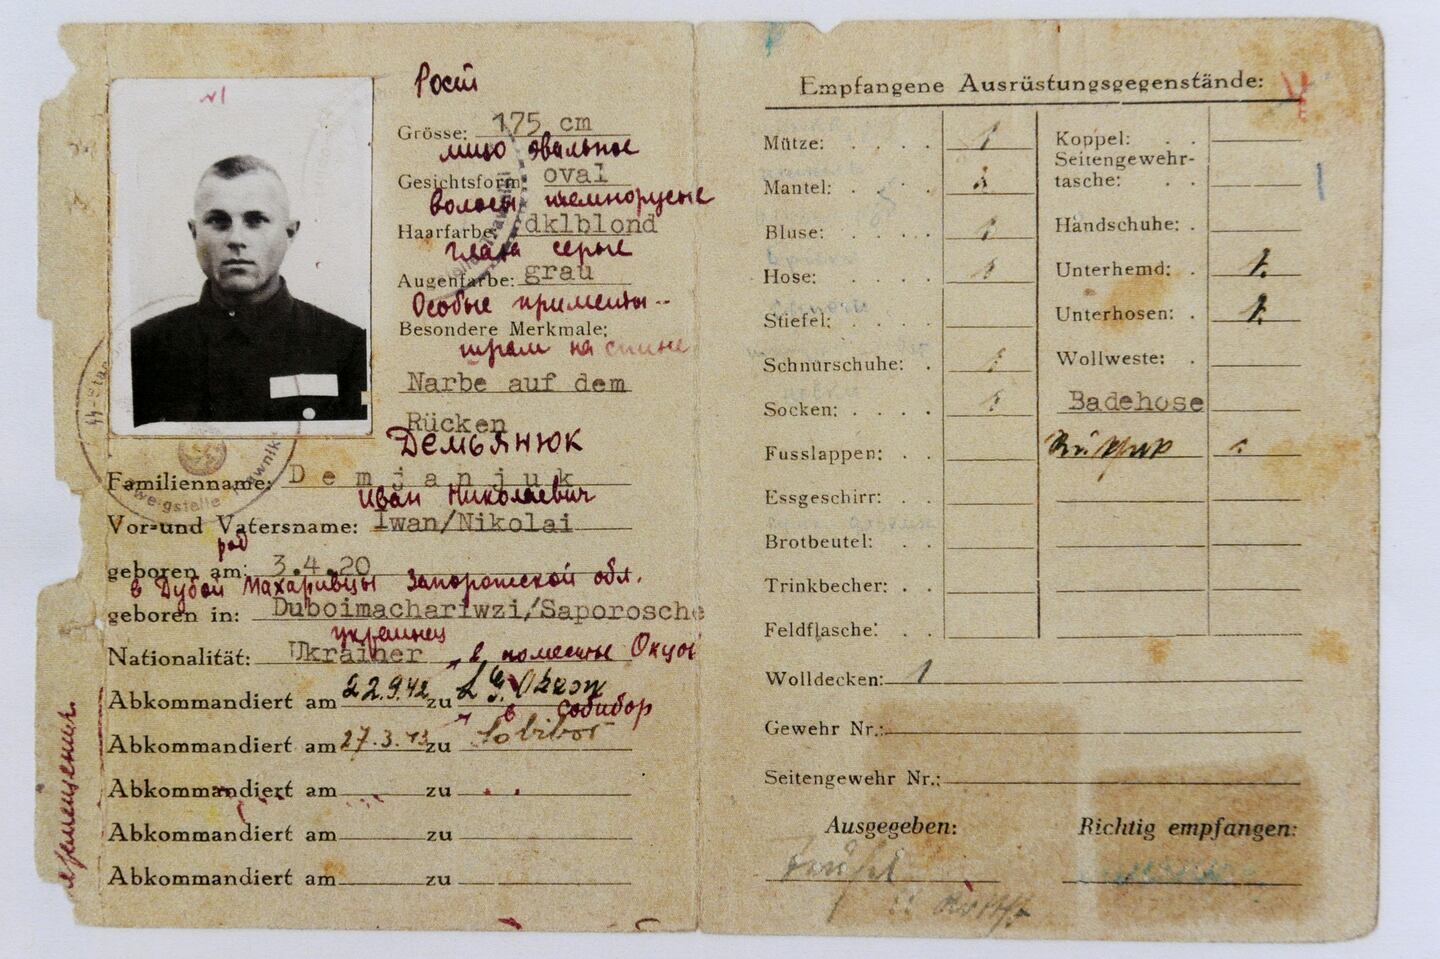 Рост
Grösse: 175 cm
лицо овальное
Gesichtsform: oval
волосы темнорусые
Haarfarbe: dklblond
глаза серые
Augenfarbe: grau
Особые приметы
Besondere Merkmale:
шрам на спине
Narbe auf dem
Rücken
Демьянюк
Familienname: Demjanjuk
Иван Николаевич
Vor-und Vatersname: Iwan/Nikolai
род
geboren am: 3.4.20
в Дубой Махаривцы Запорожской обл.
geboren in: Duboimachariwzi/Saporosche
украинец
Nationalität: Ukrainer
в поместье Окцов
Abkommandiert am 22.9.42 zu L.G. Okzow
в Собибор
Abkommandiert am 27.3.43 zu Sobibor
Abkommandiert am zu
Abkommandiert am zu
Abkommandiert am zu
Empfangene Ausrüstungsgegenstände:
Mütze: 1
Mantel: 1
Bluse: 1
Hose: 1
Stiefel:
Schnürschuhe: 1
Socken: 1
Fusslappen:
Essgeschirr:
Brotbeutel:
Trinkbecher:
Feldflasche:
Koppel:
Seitengewehr-
tasche:
Handschuhe:
Unterhemd: 1.
Unterhosen: 1.
Wollweste:
Badehose
Wolldecken: 1
Gewehr Nr.:
Seitengewehr Nr.:
Ausgegeben: Richtig empfangen: